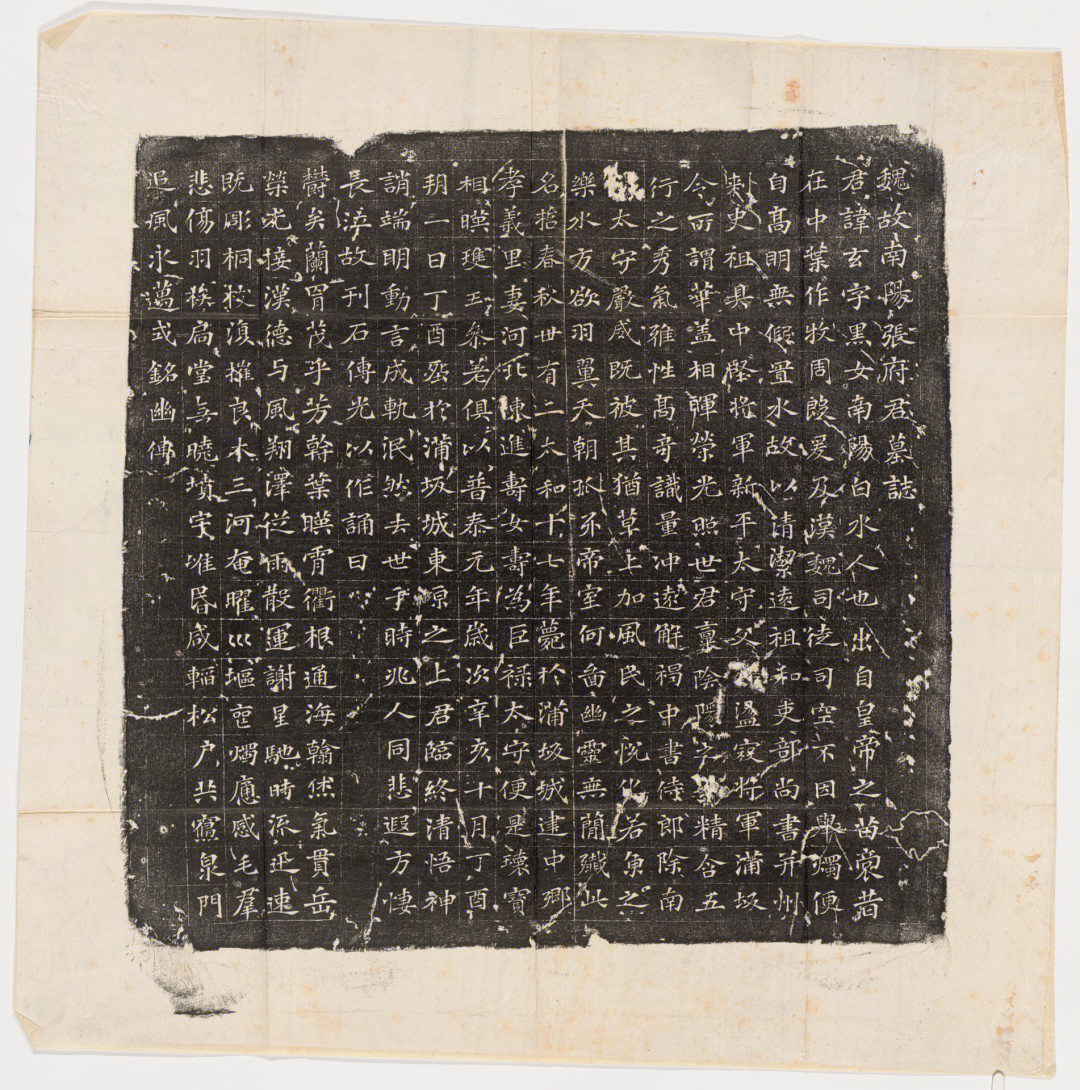 魏故南陽張府君墓誌
君諱玄字黑女南陽白水人也出自皇帝之苗裔昔
在中葉作牧周殷爰及漢魏司徒司空不因舉燭便
自高明無假置水故以清潔遠祖和吏部尚書并州
刺史祖具中堅將軍新平太守父盪寇將軍蒲坂
令所謂華蓋相暉榮光照世君稟陰陽之精含五
行之秀氣雅性高奇識量沖遠解褐中書侍郎除南
太守嚴威既被其猶草上加風民之悅化若魚之
樂水方欲羽翼天朝抓牙帝室何啚幽靈無簡殲此
名哲春秋卅有二太和十七年薨於蒲坂城建中鄉
孝義里妻河北陳進壽女壽為巨祿太守便是瓌寶
相暎瓊玉參差俱以普泰元年歲次辛亥十月丁酉
朔一日丁酉葬於蒲坂城東原之上君臨終清悟神
誚端明動言成軌泯然去世于時兆人同悲遐方悽
長泣故刊石傳光以作誦曰
鬱矣蘭冑茂乎芳幹葉暎霄衢根通海翰然氣貫岳
榮光接漢德与風翔澤從雨散運謝星馳時流迅速
既彫桐枝復摧良木三河奄曜巛墟寔燭痛感毛群
悲傷羽族扃堂无曉墳宇唯昏咸輼松戶共寢泉門
追風永邁式銘幽傳